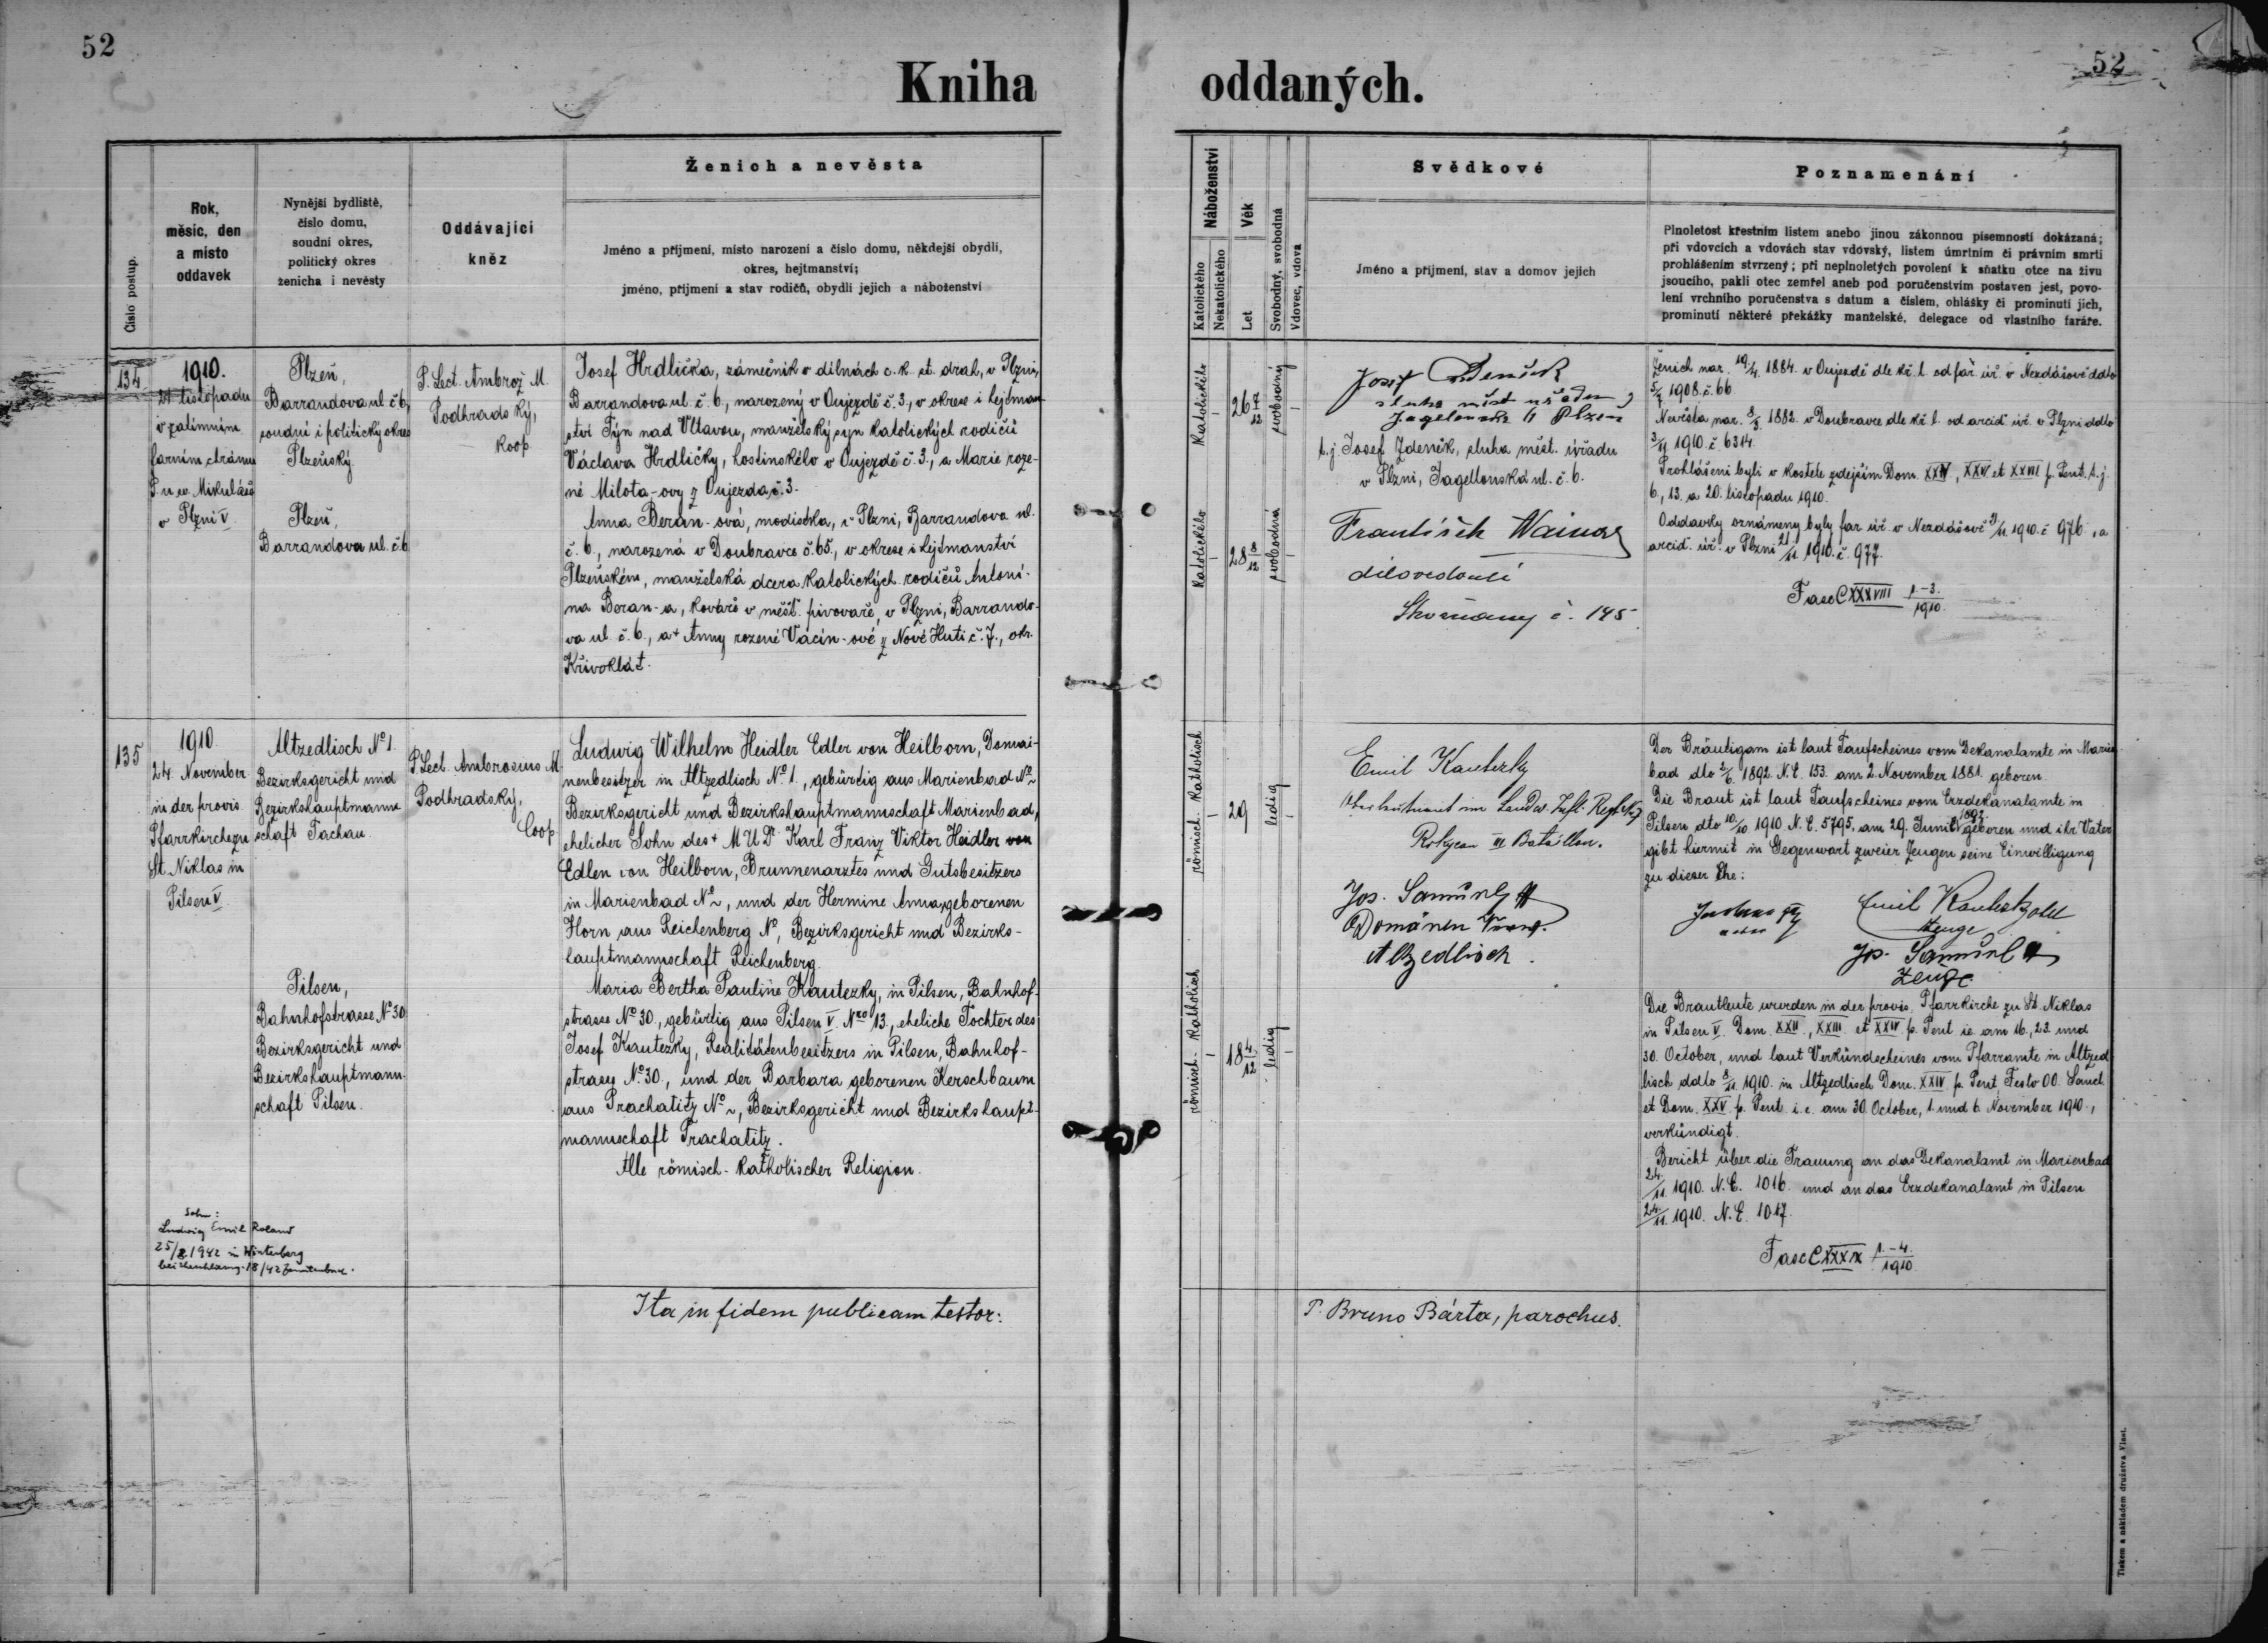 52
Kniha
Číslo postup.
Rok,
měsíc, den
a místo
oddavek
Nynější bydliště,
číslo domu,
soudní okres,
politický okres
ženicha i nevěsty
Oddávající
kněz
Ženich a nevěsta
Jméno a příjmení, místo narození a číslo domu, někdejší obydlí,
okres, hejtmanství;
jméno, příjmení a stav rodičů, obydlí jejich a náboženství
134
1910.
21 listopadu
v zatímním
farním chrámu
P. u sv. Mikuláše
v Plzni V
Plzeň,
Barrandova ul. č 6,
soudní i politický okres
Plzeňský.
Plzeň,
Barrandova ul. č 6
P. Lect. Ambrož M.
Podhradský,
koop
Josef Hrdlička, zámečník v dílnách c. k. st. drah, v Plzni,
Barrandova ul. č. 6., narozený v Oujezdě č. 3., v okrese i hejtman
ství Týn nad Vltavou, manželský syn katolických rodičů
Václava Hrdličky, hostinského v Oujezdě č. 3., a Marie roze-
né Milota-ovy z Oujezda č. 3.
Anna Beran-ová, modistka, v Plzni, Barrandova ul.
č. 6., narozená v Doubravce č. 65., v okrese i hejtmanství
Plzeňském, manželská dcera katolických rodičů Antoní-
na Beran-a, kováře v měšť. pivovaře, v Plzni, Barrando-
va ul. č. 6., a + Anny rozené Vacín-ové z Nové Huti č. 7., okr.
Křivoklát.
135
1910
24. November
in der provis
Pfarrkirche zu
St. Niklas in
Pilsen V
Altzedlisch No 1.
Bezirksgericht und
Bezirkshauptmann-
schaft Tachau.
Pilsen,
Bahnhofstrasse No 30
Bezirksgericht und
Bezirkshauptmann-
schaft Pilsen.
P. Lect. Ambrosius M.
Podhradský,
Coop
Ludwig Wilhelm Heidler Edler von Heilborn, Domai-
nenbesitzer in Altzedlisch No 1., gebürtig aus Marienbad No ~
Bezirksgericht und Bezirkshauptmannschaft Marienbad,
ehelicher Sohn des + M U Dr Karl Franz Viktor Heidler von
Edlen von Heilborn, Brunnenarztes und Gutsbesitzers
in Marienbad No ~, und der Hermine Anna, geborenen
Horn aus Reichenberg No, Bezirksgericht und Bezirks-
hauptmannschaft Reichenberg.
Maria Bertha Pauline Kautezky, in Pilsen, Bahnhof-
strasse No 30., gebürtig aus Pilsen V. Nro 13., eheliche Tochter des
Josef Kautezky, Realitätenbesitzers in Pilsen, Bahnhof-
strasse No 30., und der Barbara geborenen Kerschbaum
aus Prachatitz No ~, Bezirksgericht und Bezirkshaupt-
mannschaft Prachatitz.
Alle römisch-katholischer Religion.
Sohn:
Ludwig Emil Roland
25/2. 1942 in Winterberg
18/42
Ita in fidem publicam testor:
52
oddaných.
Náboženství
Katolického
Nekatolického
Věk
Let
Svobodný, svobodná
Vdovec, vdova
Svědkové
Jméno a příjmení, stav a domov jejich
Poznamenání
Plnoletost křestním listem anebo jinou zákonnou písemností dokázaná;
při vdovcích a vdovách stav vdovský, listem úmrtním či právním smrti
prohlášením stvrzený; při neplnoletých povolení k sňatku otce na živu
jsoucího, pakli otec zemřel aneb pod poručenstvím postaven jest, povo-
lení vrchního poručenstva s datum a číslem, ohlášky či prominutí jich,
prominutí některé překážky manželské, delegace od vlastního faráře.
Katolického
26 7/12
svobodný
Josef Zdeněk
sluha měst. úřadu
Jagelonská 6 Plzeň
t. j. Josef Zdeněk, sluha měst. úřadu
v Plzni, Jagellonská ul. č. 6.
Katolického
28 8/12
svobodná
František Wainar
dílovedoucí
Skvrňany č. 145
Ženich nar. 19/4. 1884. v Oujezdě dle kř. l. od far. úř. v Nezdášově ddto
5/7 1908. č. 66
Nevěsta nar. 8/3. 1882. v Doubravce dle kř. l. od arcid. úř. v Plzni ddto
3/11 1910. č 6314.
Prohlášeni byli v kostele zdejším Dom. XXIV, XXV et XXVII p. Pent. t. j.
6., 13. a 20. listopadu 1910.
Oddavky oznámeny byly far úř v Nezdášově 21/11 1910. č 976., a
arcid. úř. v Plzni 21/11. 1910. č. 977.
Fasc CXXXVIII 1.-3./1910.
römisch-katholisch
29
ledig
Emil Kautezky
Oberleutnant im Landw. Inft. Regt. No 7
Rokycan III Bataillon.
Jos. Samuel
Domänen Verw.
Altzedlisch.
römisch-katholisch
18 4/12
ledig
Der Bräutigam ist laut Taufscheines vom Dekanalamte in Marien
bad dto 2/6. 1892. N. E. 153. am 2. November 1881. geboren.
Die Braut ist laut Taufscheines vom Erzdekanalamte in
Pilsen dto 10/10 1910. N. E. 5795. am 29. Juni 1892. geboren und ihr Vater
gibt hiermit in Gegenwart zweier Zeugen seine Einwilligung
zu dieser Ehe:
Emil Kautezky
Zeuge
Jos. Samuel
Zeuge
Die Brautleute wurden in der provis. Pfarrkirche zu St. Niklas
in Pilsen V. Dom. XXII., XXIII. et XXIV p. Pent i e am 16., 23. und
30. October, und laut Verkündscheines vom Pfarramte in Altzed
lisch ddto 8/11. 1910. in Altzedlisch Dom. XXIV p. Pent Festo OO. Sanct.
et Dom. XXV. p. Pent. i. e. am 30. October, 1. und 6. November 1910.,
verkündigt.
Bericht über die Trauung an das Dekanalamt in Marienbad
24/11. 1910. N. E. 1016. und an das Erzdekanalamt in Pilsen
24/11. 1910. N. E. 1017.
Fasc CXXXIX 1.-4./1910.
P. Bruno Bárta, parochus.
Tiskem a nákladem družstva Vlast.